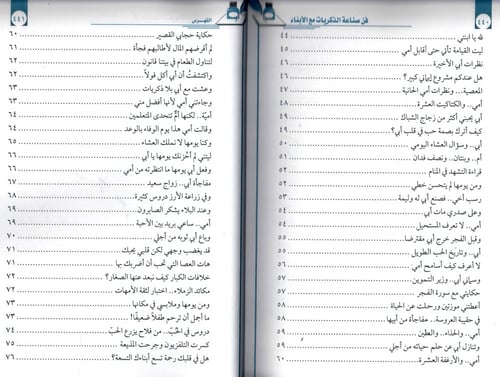 ٤٤٠
فن صناعة الذكريات مع الأبناء
لله يا ابنتي ٤٤
ليت القيامة تأتي حتى أقابل أمي ٤٥
نظرات أبي الأخيرة ٤٦
هل عندكم مشروع إيماني كبير؟ ٤٦
المعصية.. ونظرات أمي الحانية ٤٧
أمي.. والكتاكيت العشرة ٤٨
أبي يحبني أكثر من زجاج الشباك ٤٩
كيف أترك بصمة حب في قلب أبي؟ ٤٩
أبي.. وسؤال العشاء اليومي ٥٠
أم.. وبنتان.. ونصف فدان ٥٠
قراءة التشهد في المنام ٥٢
ومن يومها لم يتحسن خطي ٥٢
رسب أخي.. فصنع أبي له وليمة ٥٣
وعلى صدري مات أبي ٥٤
أمي.. لا تعرف المستحيل ٥٤
وقبل الفجر خرج أبي مقترضا ٥٥
أبي.. وتاريخ الحب الطويل ٥٥
لا أعرف كيف أسامح أمي ٥٦
وسماني أبي.. وزير التموين ٥٦
حكايتي مع سورة الفجر ٥٧
أعطتني موزتين ورحلت عن الحياة ٥٨
في حقيبة العروسة.. مفاجأة من أبيها ٥٨
أمي.. والحذاء.. والطين ٥٩
وتنازل أبي عن حلم حياته من أجلي ٥٩
أمي.. والأرغفة العشرة ٦٠
الفهرس
٤٤١
حكاية حجابي القصير ٦٠
لم أقرضهم المال لأطالبهم فجأة ٦١
لتناول الطعام في بيتنا قانون ٦٢
واكتشفت أن أبي أكل فولاً ٦٢
وعشت مع أبي بلا ذكريات ٦٣
وجاءتني أمي لأنها أفضل مني ٦٣
أمية.. لكنها أم تتحدى المتعلمين ٦٤
وقالت أمي هذا يوم الوفاء بالوعد ٦٤
وكنا يومها لا نملك العشاء ٦٥
ليتني لم أحزنك يومها يا أبي ٦٦
وفعل أبي يومها ما انتظرته من أمي ٦٦
مفاجأة أبي.. زواج سعيد ٦٧
وفي زراعة الأرز دروس كثيرة ٦٨
وعند البلاء يشكر الصابرون ٦٩
أمي.. ساعي بريد بين الأحبة ٦٩
وباع أبي ثوبه من أجلي ٧٠
قد يغضب وجهي لكن قلبي يحبك ٧١
هات العصا التي تحب أن أضربك بها ٧١
خلافات الكبار كيف نبعد عنها الصغار؟ ٧٢
مكائد الزملاء.. اختبار لثقة الأمهات ٧٢
ومن يومها وملابسي في مكانها ٧٣
ما أجمل أن ترحم طفلاً ضعيفًا! ٧٣
دروس في الحُبّ.. من فلاح يزرع الحَبّ ٧٤
كسرت التلفزيون وجرحت المذيعة ٧٥
هل في قلبك رحمة تسع أبناءك التسعة؟ ٧٦